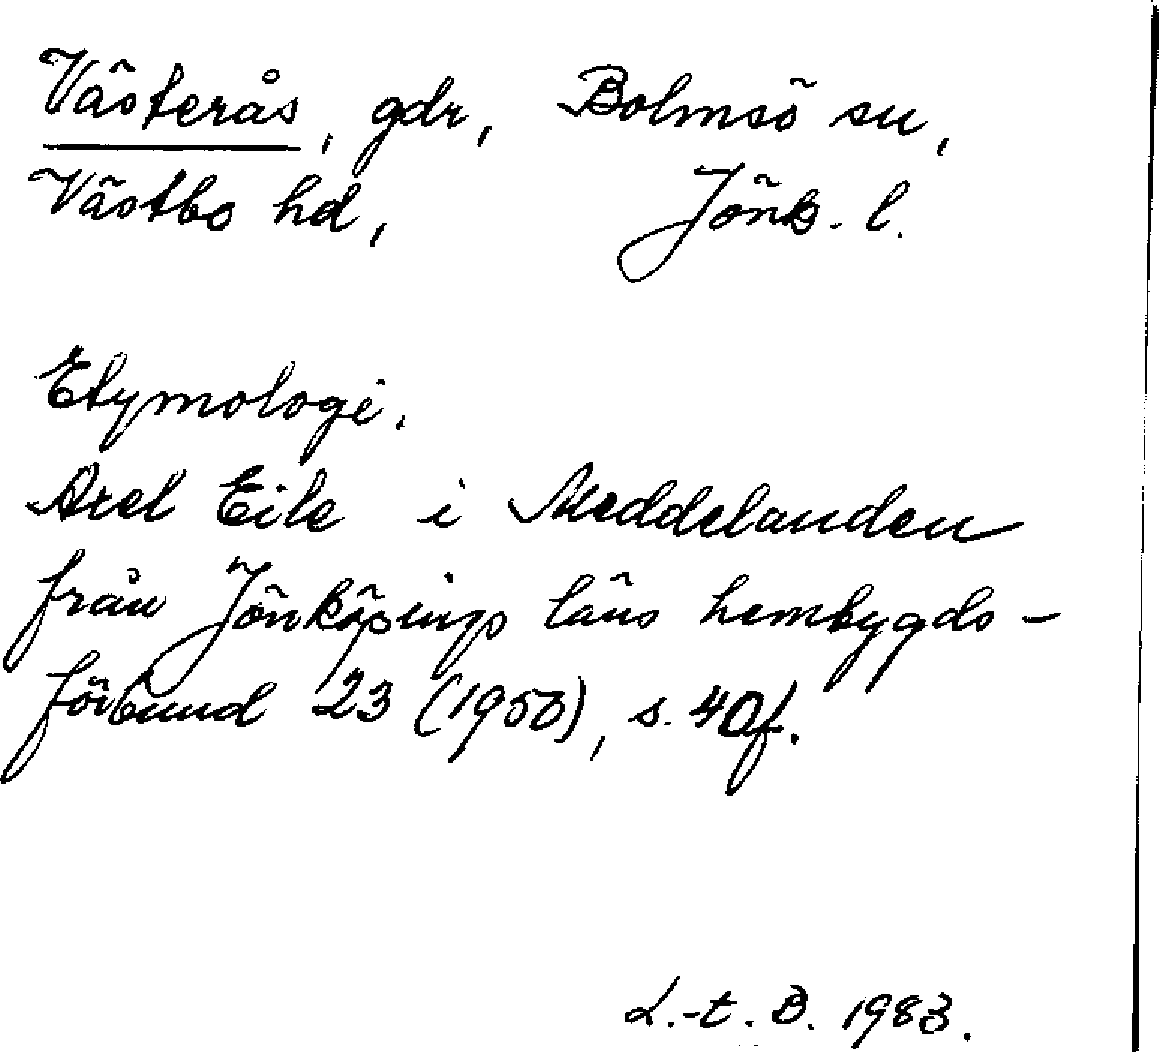 Västerås, gdr, Bolmsö sn,
Västbo hd, Jönk. l.
Etymologi.
Axel Eile i Meddelanden
från Jönköpings läns hembygds-
förbund 23 (1950), s. 40f.
L.-t. B. 1983.